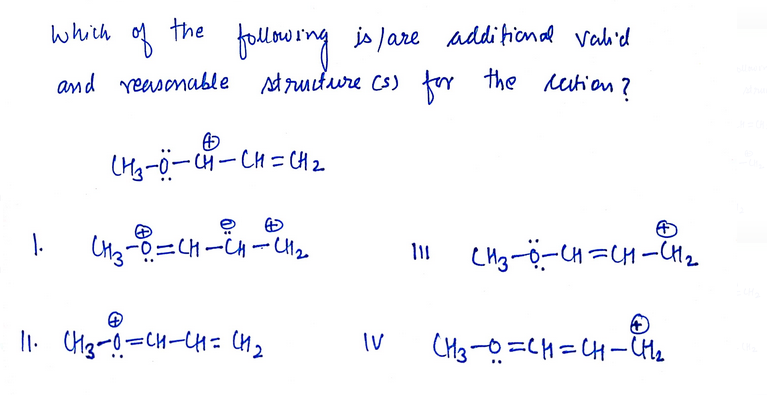 Which of the following is/are additional valid
and reasonable structure (s) for the cation?
CH3–Ö–CH⊕–CH=CH2
I. CH3–O⊕=CH–CH⊖–CH2⊕
III CH3–Ö–CH=CH–CH2⊕
II. CH3–O⊕=CH–CH=CH2
IV CH3–O=CH=CH–CH2⊕